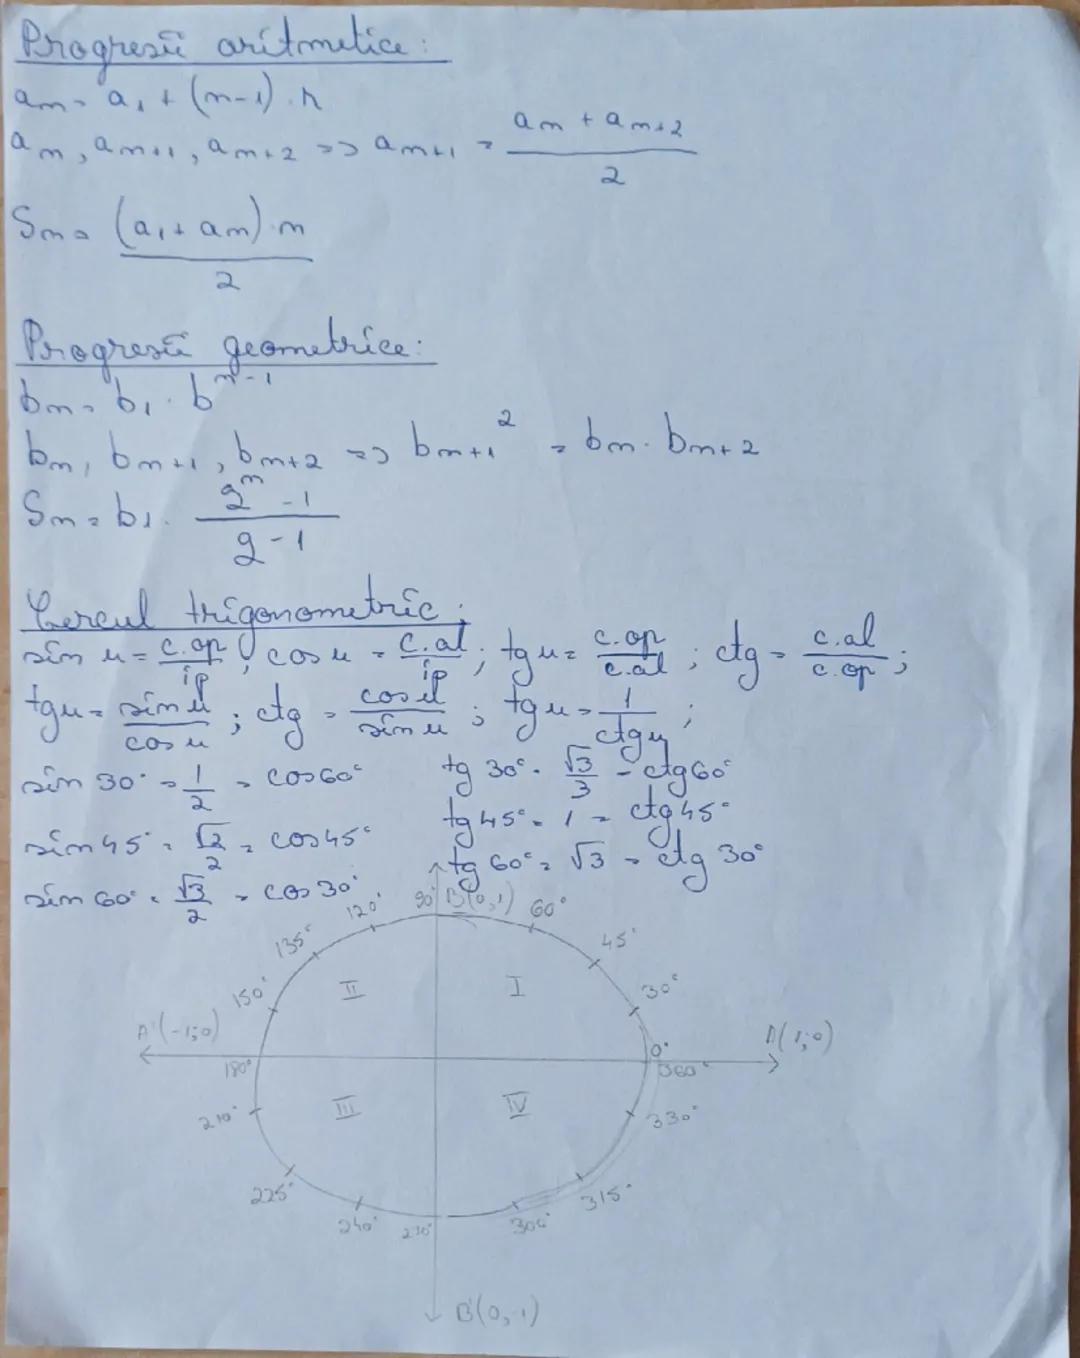 Progresii aritmetice:
an = a1 + (n-1)·r
an, an+1, an+2 => an+1 = (an + an+2)/2
Sn = (a1 + an)·n/2
Progresii geometrice:
bn = b1·b^n-1
bn, bn+1, bn+2 => bn+1² = bn·bn+2
Sn = b1·(q^n - 1)/(q - 1)
Cercul trigonometric:
sin u = c.op/ip, cos u = c.al/ip; tg u = c.op/c.al; ctg = c.al/c.op;
tg u = sin u/cos u; ctg = cos u/sin u; tg u = 1/ctg u;
sin 30° = 1/2 = cos 60° tg 30° = √3/3 = ctg 60°
sin 45° = √2/2 = cos 45° tg 45° = 1 = ctg 45°
sin 60° = √3/2 = cos 30° tg 60° = √3 = ctg 30°
120° 90° B(0,1) 60°
135° 45°
150° II I 30°
A'(-1;0) A(1;0)
180° 0°
360°
210° III IV 330°
225° 315°
240° 270° 300°
B'(0,-1)